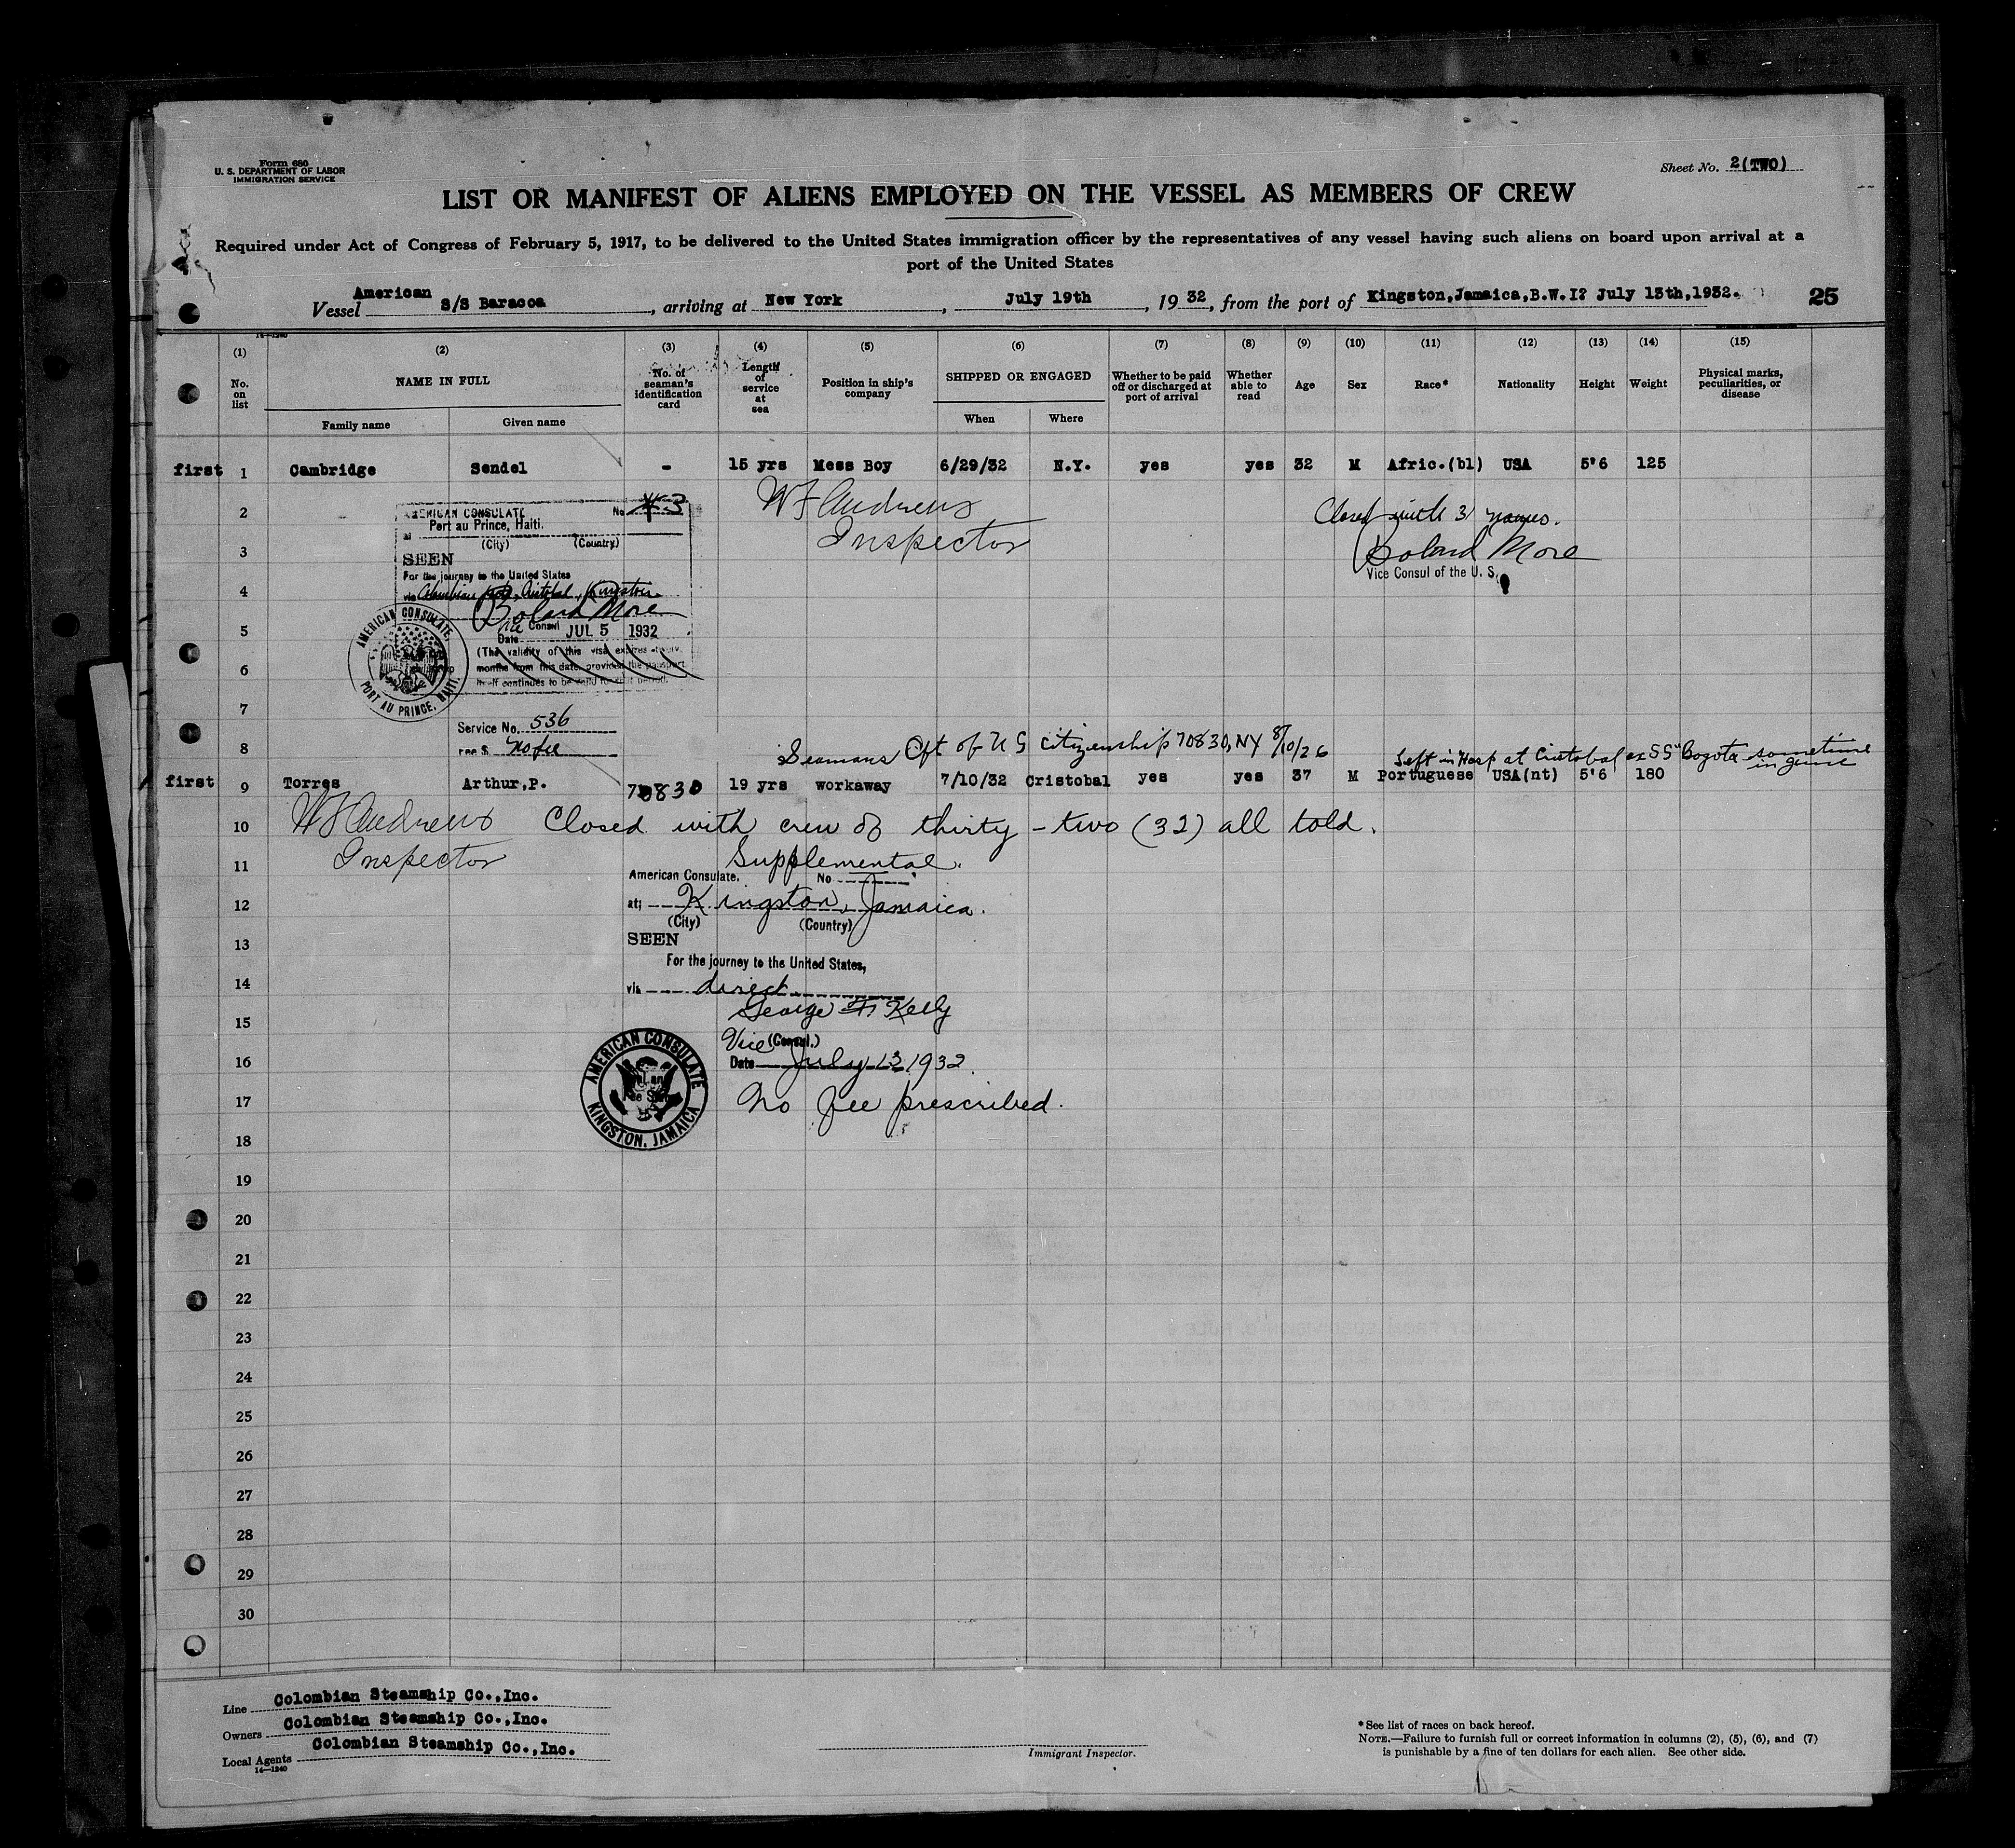 Form 680
U. S. DEPARTMENT OF LABOR
IMMIGRATION SERVICE
Sheet No. 2(TWO)
LIST OR MANIFEST OF ALIENS EMPLOYED ON THE VESSEL AS MEMBERS OF CREW
Required under Act of Congress of February 5, 1917, to be delivered to the United States immigration officer by the representatives of any vessel having such aliens on board upon arrival at a
port of the United States
Vessel American S/S Baracoa, arriving at New York, July 19th, 1932, from the port of Kingston,Jamaica,B.W.I? July 13th,1932. 25
14—1240
(1) (2) (3) (4) (5) (6) (7) (8) (9) (10) (11) (12) (13) (14) (15)
No. on list
NAME IN FULL
Family name
Given name
No. of seaman's identification card
Length of service at sea
Position in ship's company
SHIPPED OR ENGAGED
When
Where
Whether to be paid off or discharged at port of arrival
Whether able to read
Age
Sex
Race*
Nationality
Height
Weight
Physical marks, peculiarities, or disease
first 1 Cambridge Sendel - 15 yrs Mess Boy 6/29/32 N.Y. yes yes 32 M Afric.(bl) USA 5'6 125
2
AMERICAN CONSULATE No 3
Port au Prince, Haiti.
at
(City) (Country)
SEEN
For the journey to the United States
via Colombian Cristobal, Kingston
Boland More
Vice Consul
Date JUL 5 1932
(The validity of this visa expires
months from this date, provided the passport
itself continues to be valid for that period.
AMERICAN CONSULATE,
PORT AU PRINCE, HAITI.
Service No. 536
Fee $ No fee
W F Andrews
Inspector
Closed with 31 names.
Boland More
Vice Consul of the U. S.
3
4
5
6
7
8
Seamans Cft of U S Citizenship 70830, NY 8/10/26
Left in Hosp at Cristobal ex SS "Bogota sometime
in June
first 9 Torres Arthur,P. 70830 19 yrs workaway 7/10/32 Cristobal yes yes 37 M Portuguese USA(nt) 5'6 180
10 W F Andrews Closed with crew of thirty-two (32) all told.
11 Inspector Supplemental.
American Consulate. No
12 at; Kingston, Jamaica.
(City) (Country)
13 SEEN
For the journey to the United States,
14 via direct
15 George F Kelly
Vice (Consul.)
16 Date July 13, 1932.
AMERICAN CONSULATE
KINGSTON, JAMAICA
17 No fee prescribed.
18
19
20
21
22
23
24
25
26
27
28
29
30
Line Colombian Steamship Co.,Inc.
Owners Colombian Steamship Co.,Inc.
Local Agents Colombian Steamship Co.,Inc.
14—1240
Immigrant Inspector.
*See list of races on back hereof.
NOTE.—Failure to furnish full or correct information in columns (2), (5), (6), and (7)
is punishable by a fine of ten dollars for each alien. See other side.